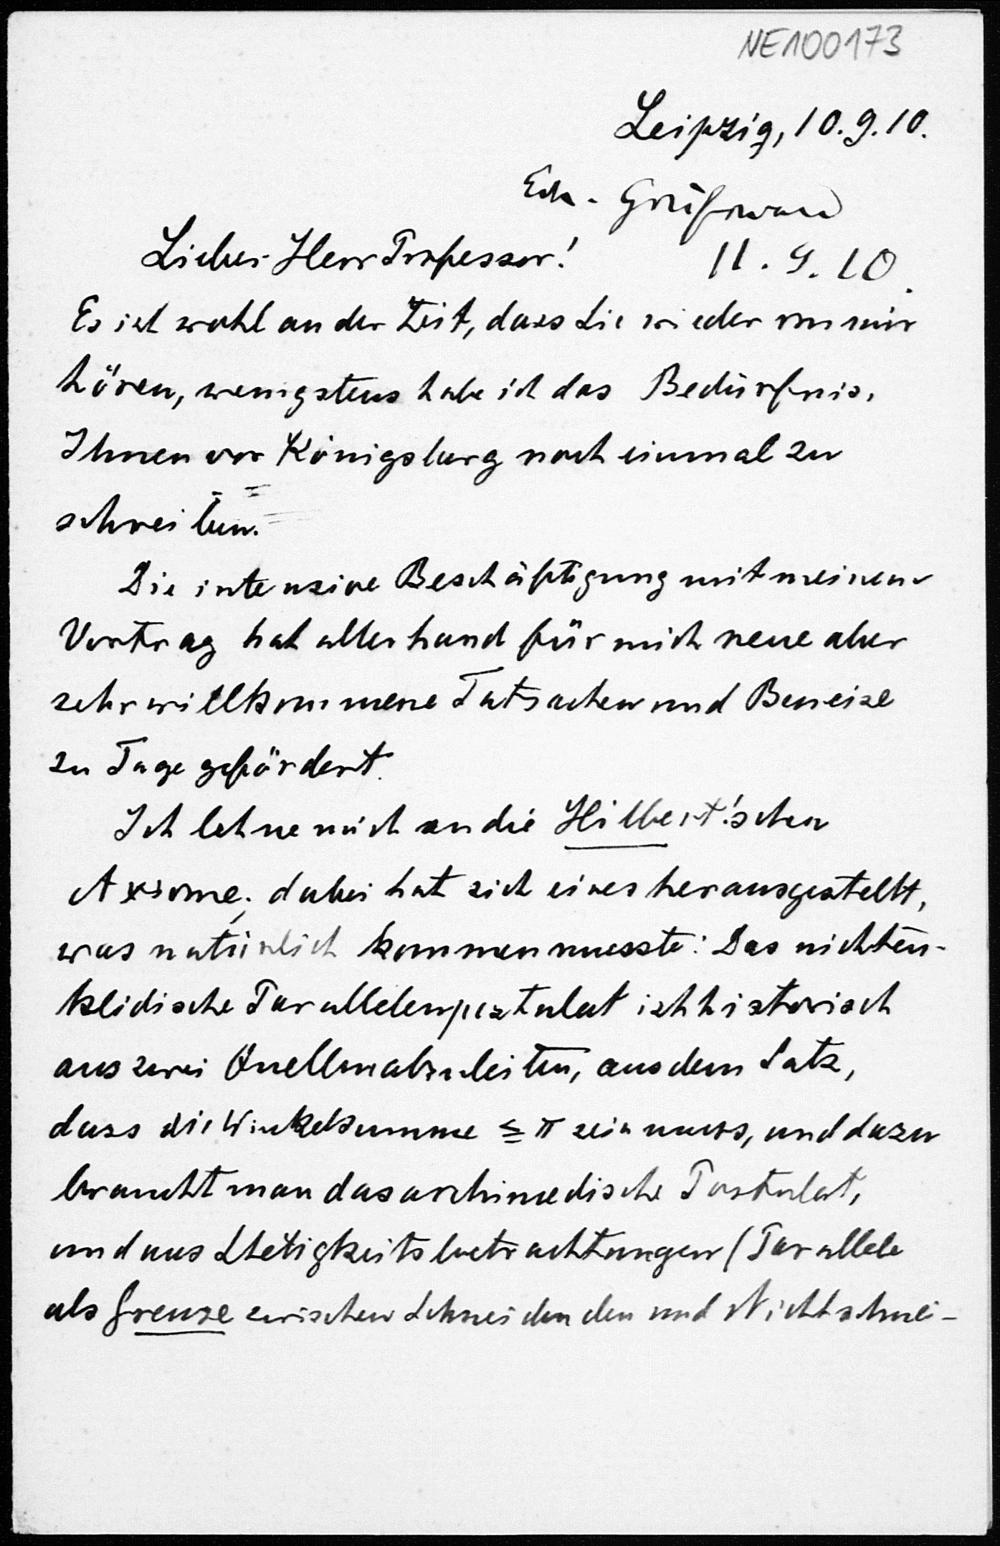 NE100173
Leipzig, 10.9.10.
Greifswald
11.9.10.
Lieber Herr Professor!
Es ist wohl an der Zeit, dass Sie wieder von mir
hören, wenigstens habe ich das Bedürfnis,
Ihnen vor Königsberg noch einmal zu
schreiben.
Die intensive Beschäftigung mit meinem
Vortrag hat allerhand für mich neue aber
sehr willkommene Tatsachen und Beweise
zu Tage gefördert.
Ich lehne mich an die Hilbert'schen
Axiome; dabei hat sich eines herausgestellt,
was natürlich kommen musste: Das nichteu-
klidische Parallelenpostulat ist historisch
aus zwei Quellen abzuleiten, aus dem Satz,
dass die Winkelsumme ≦ π sein muss, und dazu
braucht man das archimedische Postulat,
und aus Stetigkeitsbetrachtungen (Parallele
als Grenze zwischen Schneidenden und Nichtschnei-